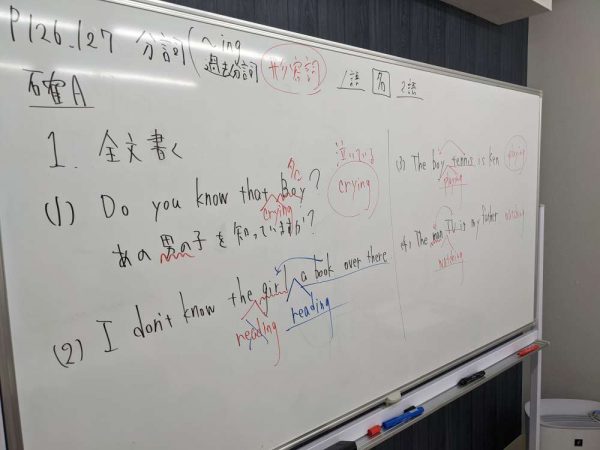 P126.127 分詞(〜ing
過去分詞
形容詞
1語 名 2語
確A
1. 全文書く
(1) Do you know that Boy?
名
crying
泣いている
crying
あの男の子を知っていますか?
(2) I don't know the girl a book over there
reading
reading
(3) The boy tennis is Ken
playing
playing
(4) The man TV is my father
watching
watching